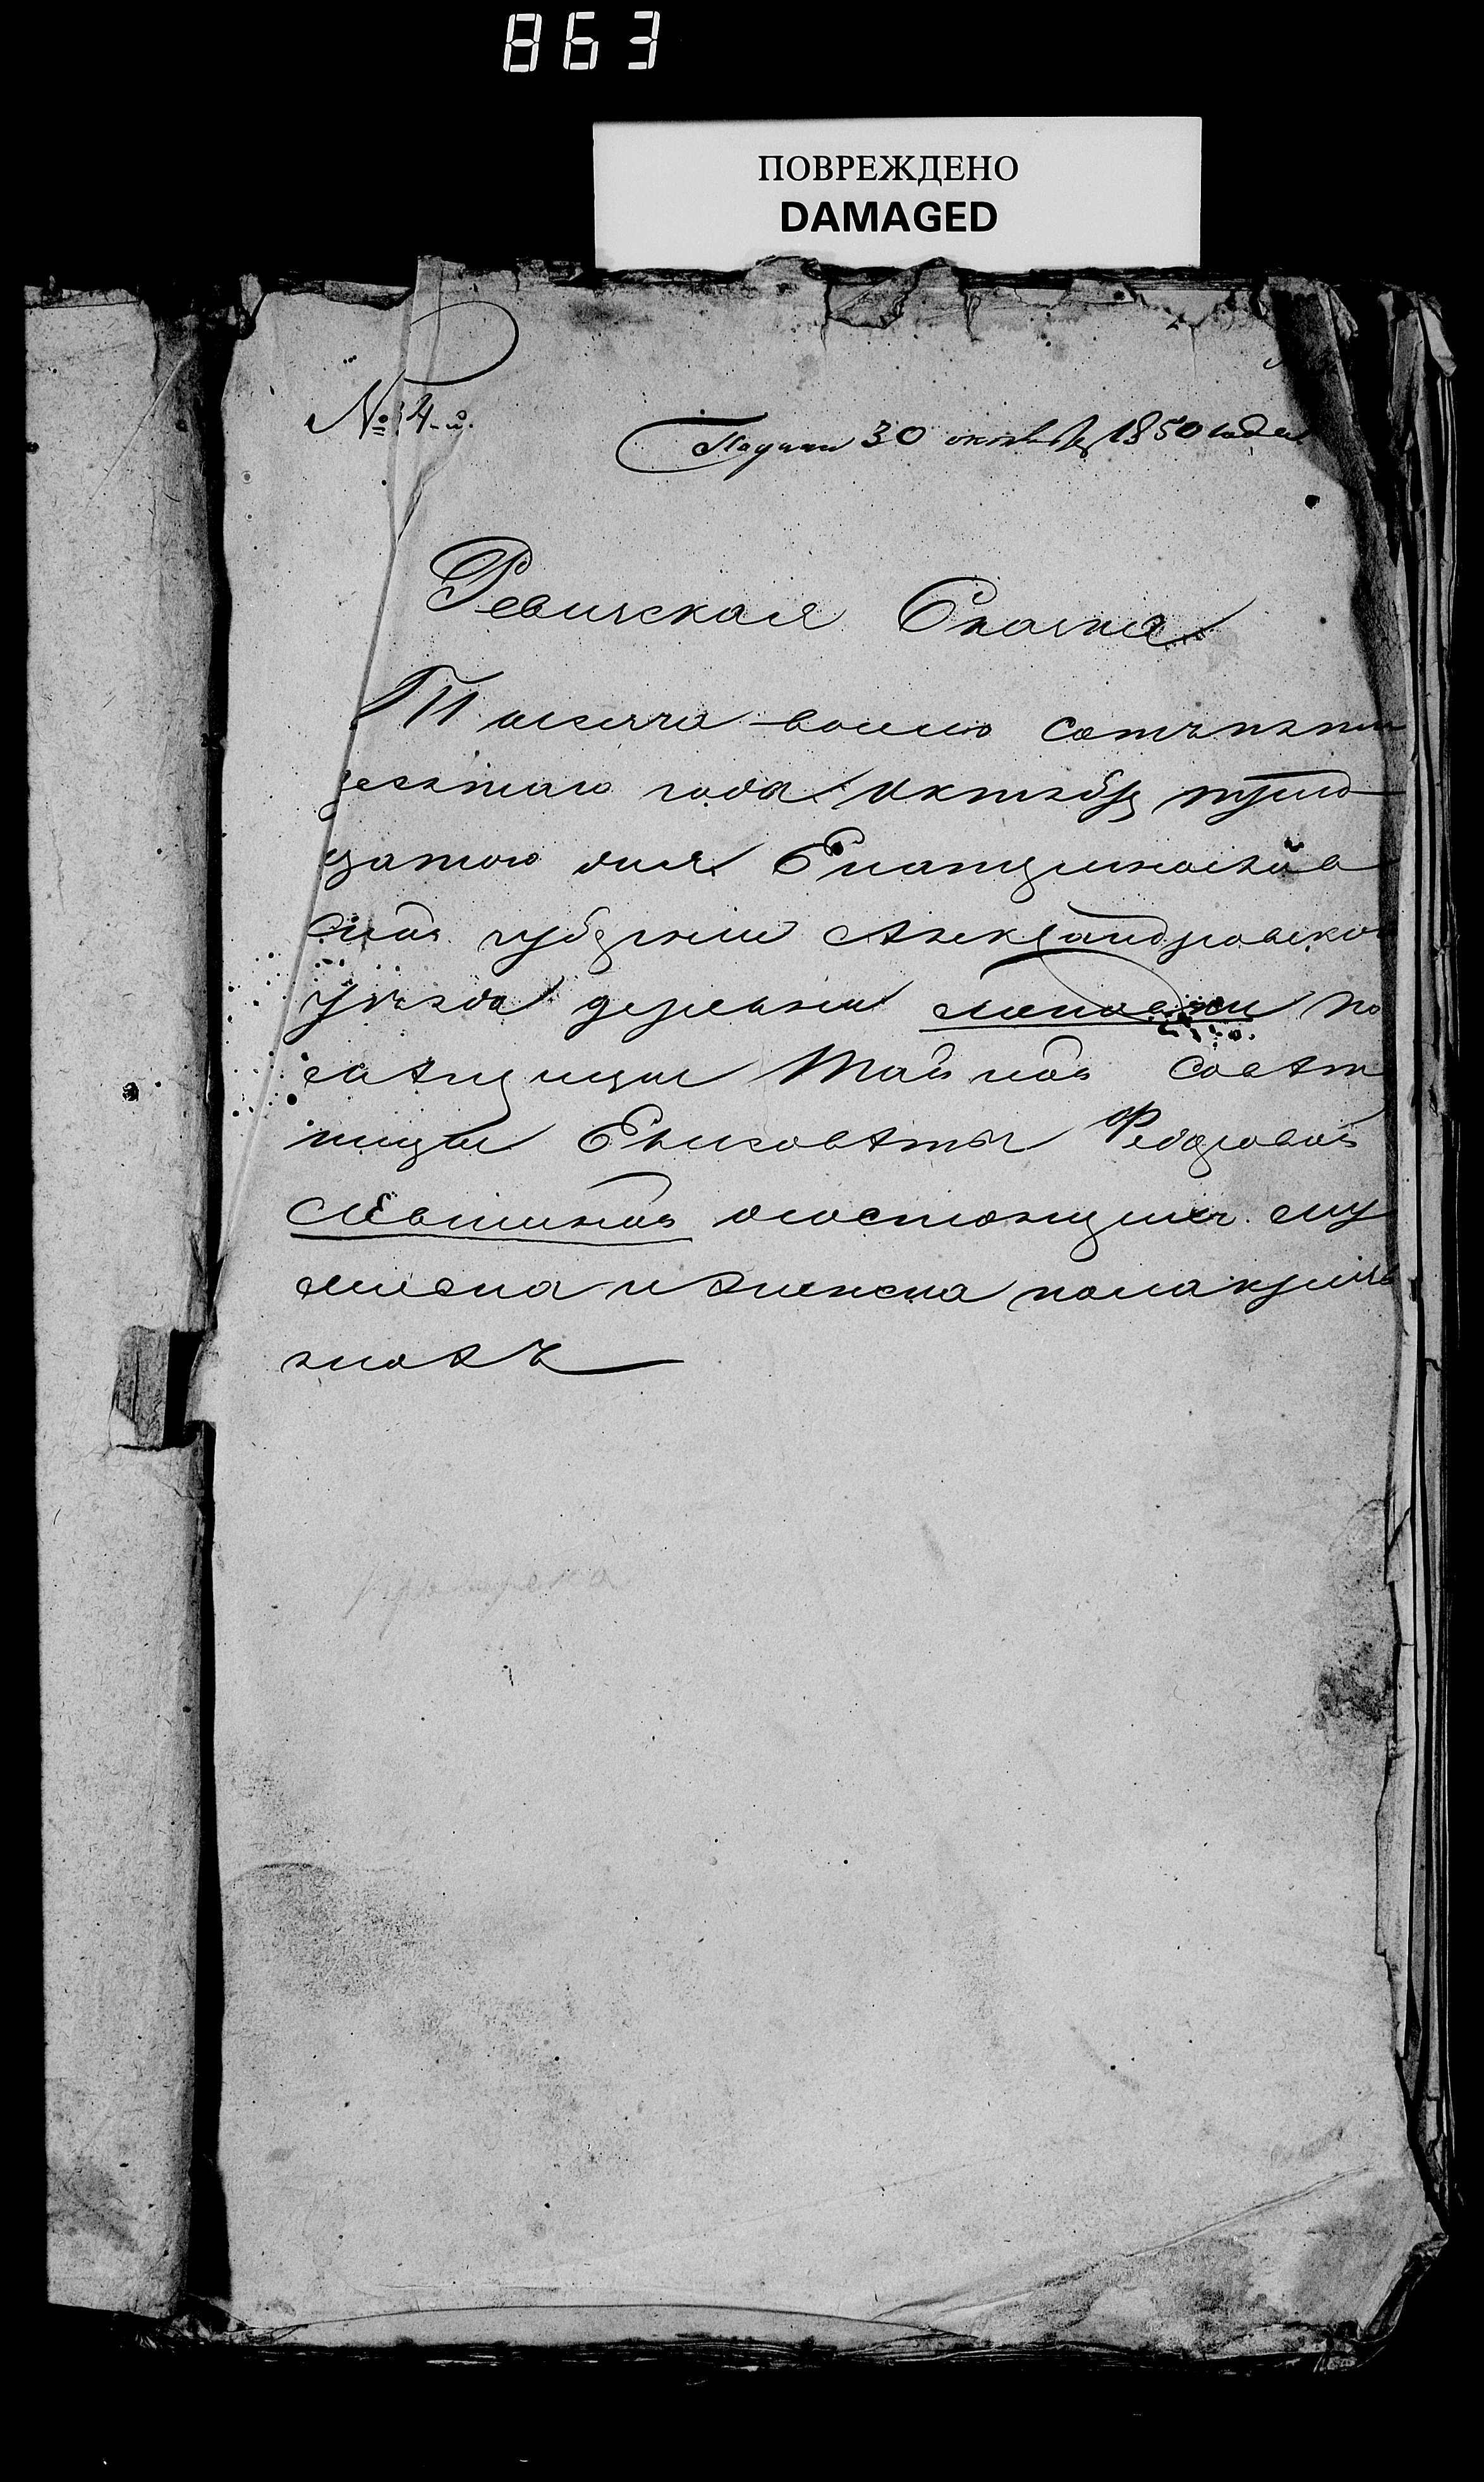 863
ПОВРЕЖДЕНО
DAMAGED
№ 4-й.
30 октября 1850 года
Ревиская Сказка
Тысеча восмо сотъ пяти
десятаго года Октября трит
цатого дня Екатеринослав
ской губернии Александровско
уѣзда деревни по
мѣщицы Тайной Совѣт
ницы Елисовѣты Федоровой
Левшиной о состоящих му
жеска и женска пола крестья
нохъ